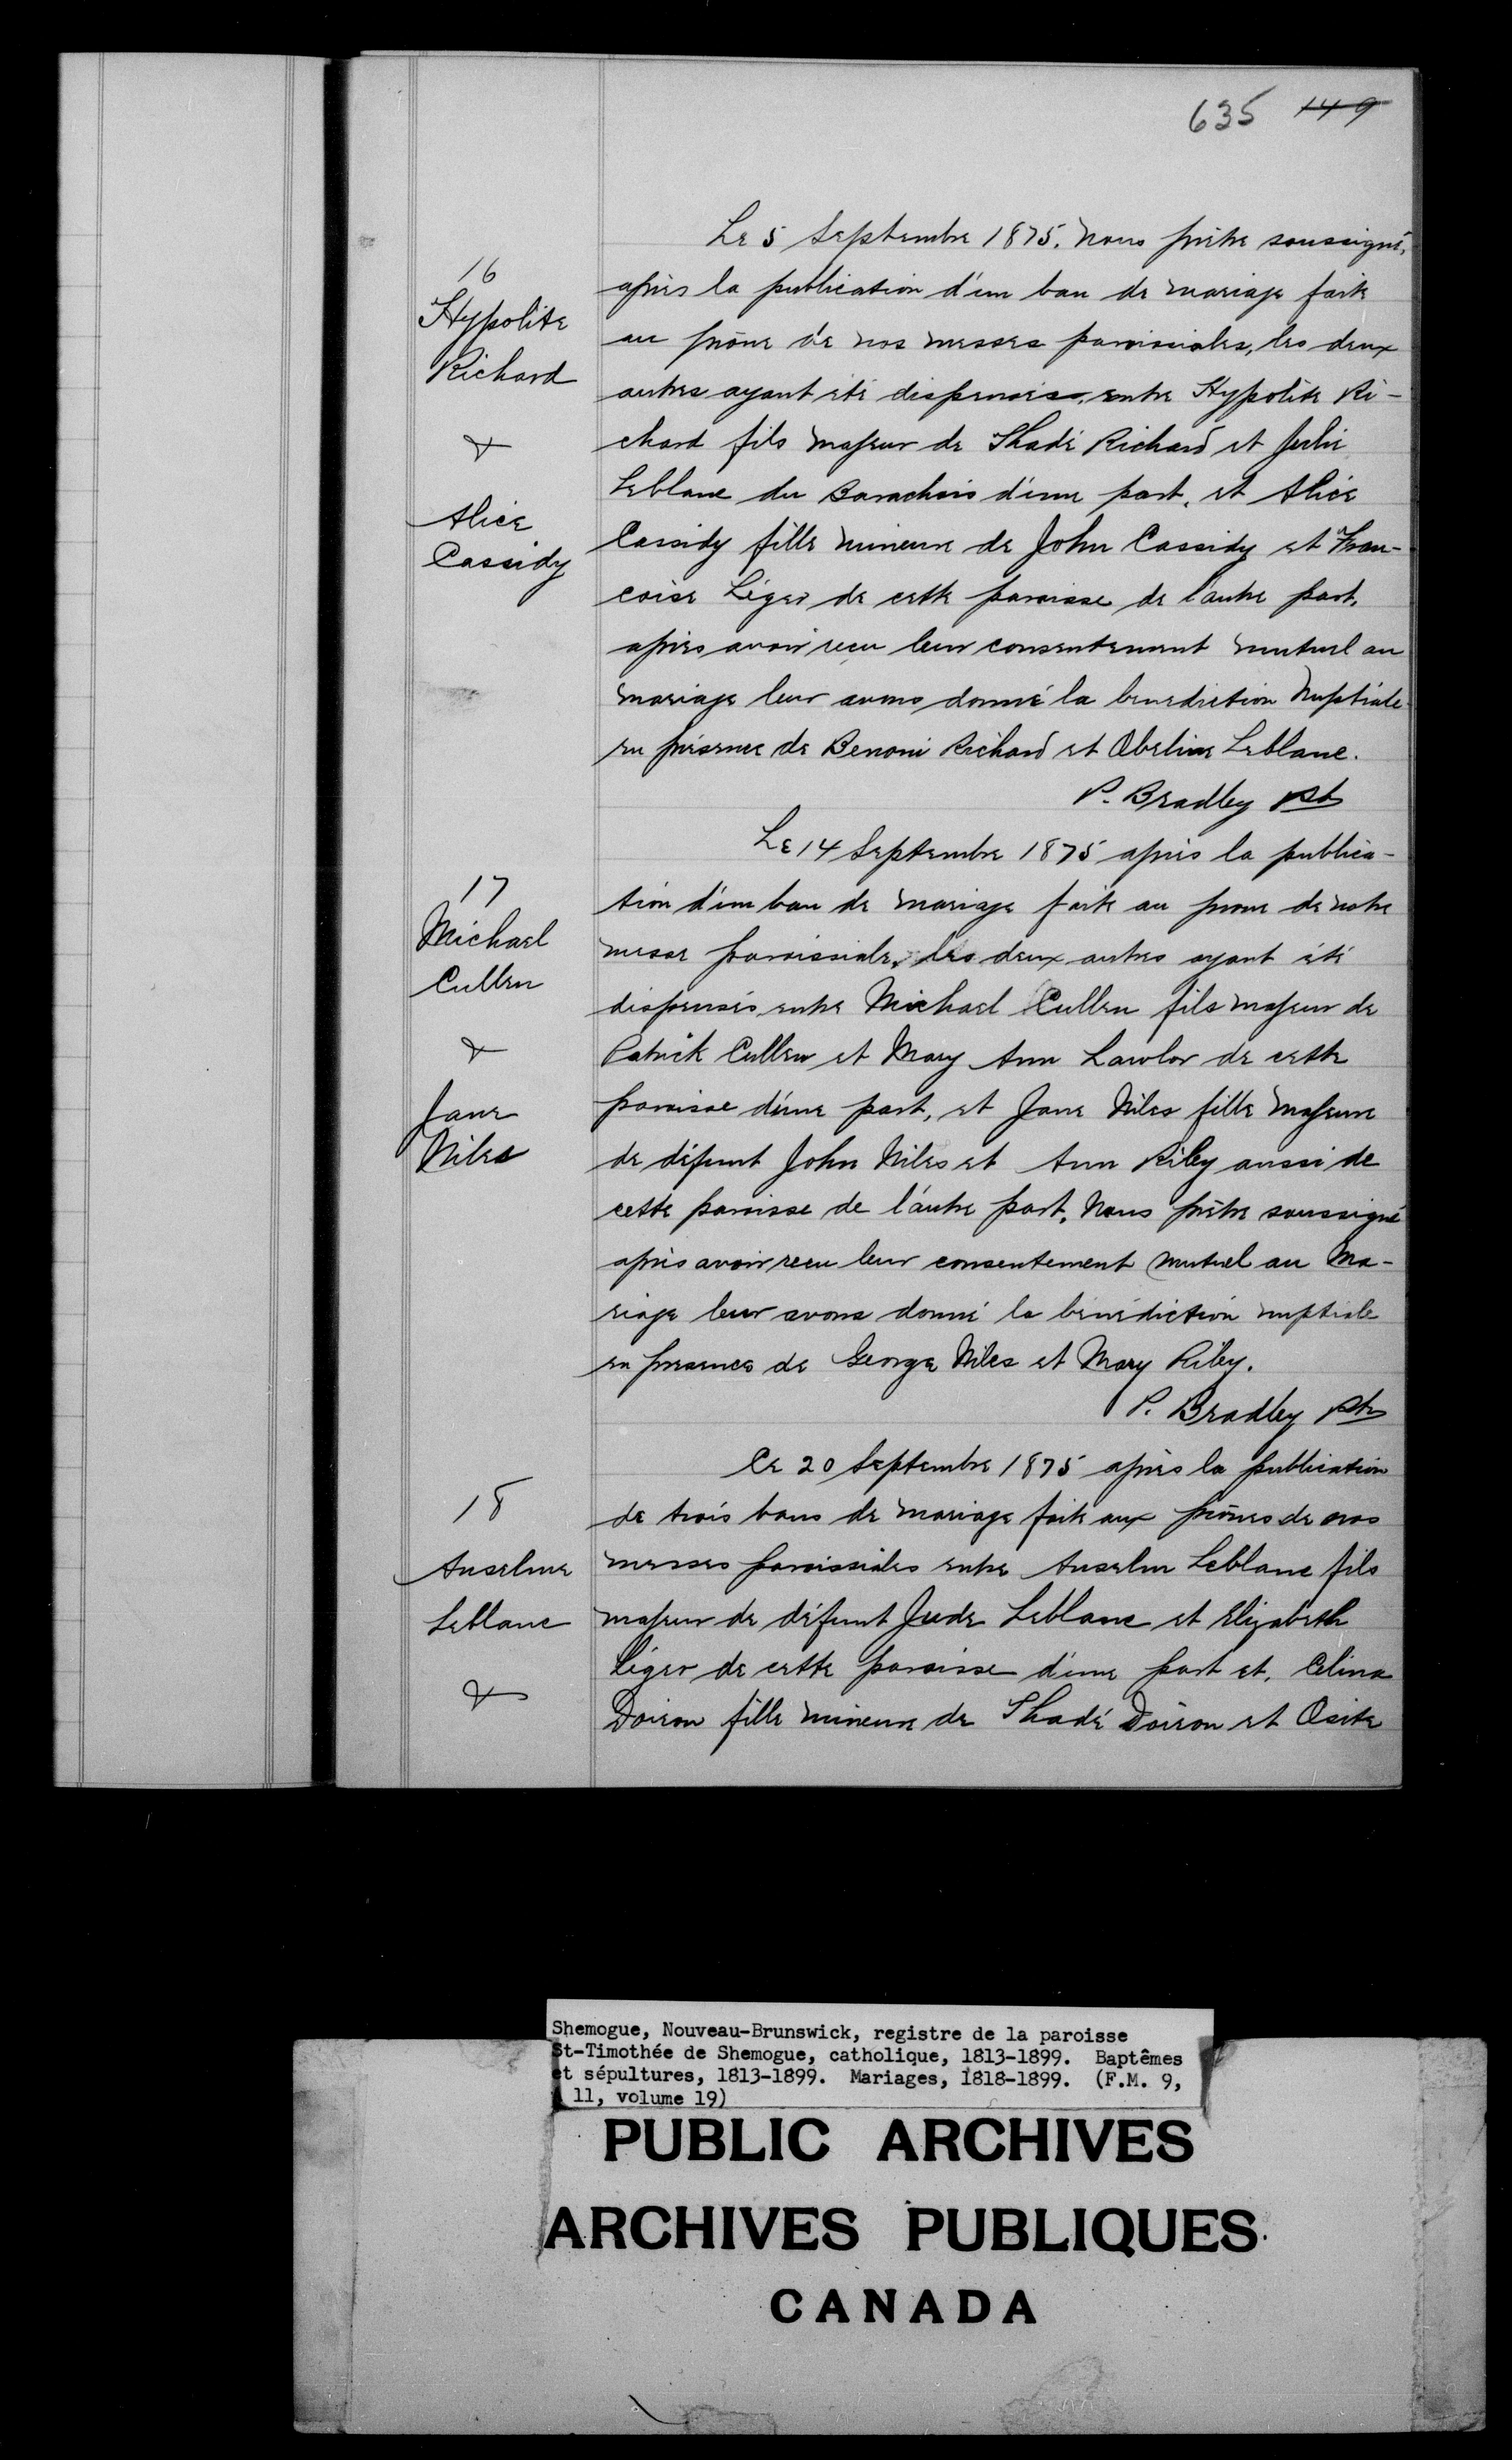 635 149
Le 5 Septembre 1875. Nous prêtre soussigné,
16
après la publication d'un ban de mariage faite
Hypolite
au prône de nos messes paroissiales, les deux
Richard
autres ayant été dispensés, entre Hypolite Ri-
&
chard fils majeur de Thadé Richard et Julie
Leblanc du Barachois d'une part, et Alice
Alice
Cassidy fille mineure de John Cassidy et Fran-
Cassidy
coise Léger de cette paroisse de l'autre part,
après avoir reçu leur consentement mutuel au
mariage leur avons donné la benediction nuptiale
en présence de Benoni Richard et Obeline Leblanc.
P. Bradley Pt
Le 14 Septembre 1875 après la publica-
17
tion d'un ban de mariage faite au prone de notre
Michael
messe paroissiale, les deux autres ayant été
Cullen
dispensés entre Michael Cullen fils majeur de
&
Patrick Cullen et Mary Ann Lawlor de cette
Jane
paroisse d'une part, et Jane Niles fille majeure
Niles
de défunt John Niles et Ann Riley aussi de
cette paroisse de l'autre part, Nous prêtre soussigné
après avoir recu leur consentement mutuel au ma-
riage leur avons donné la bénédiction nuptiale
en presence de George Niles et Mary Riley.
P. Bradley Pt
Ce 20 Septembre 1875 après la publication
18
de trois bans de mariage faite aux prônes de nos
Anselme
messes paroissiales entre Anselm Leblanc fils
Leblanc
majeur de défunt Jude Leblanc et Elizabeth
Léger de cette paroisse d'une part et, Celina
&
Doiron fille mineure de Thadé Doiron et Osite
Shemogue, Nouveau-Brunswick, registre de la paroisse
St-Timothée de Shemogue, catholique, 1813-1899. Baptêmes
et sépultures, 1813-1899. Mariages, 1818-1899. (F.M. 9,
11, volume 19)
PUBLIC ARCHIVES
ARCHIVES PUBLIQUES
CANADA